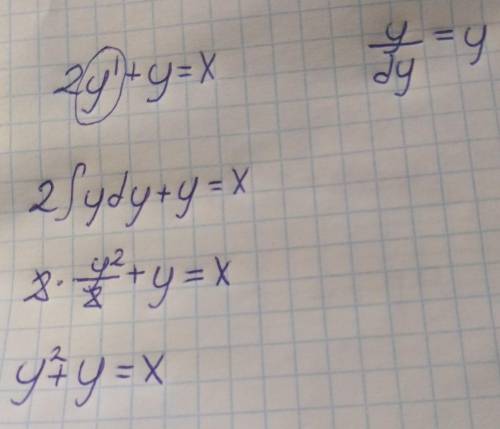 2y' + y = x
y/dy = y
2∫ydy + y = x
2 · y²/2 + y = x
y² + y = x